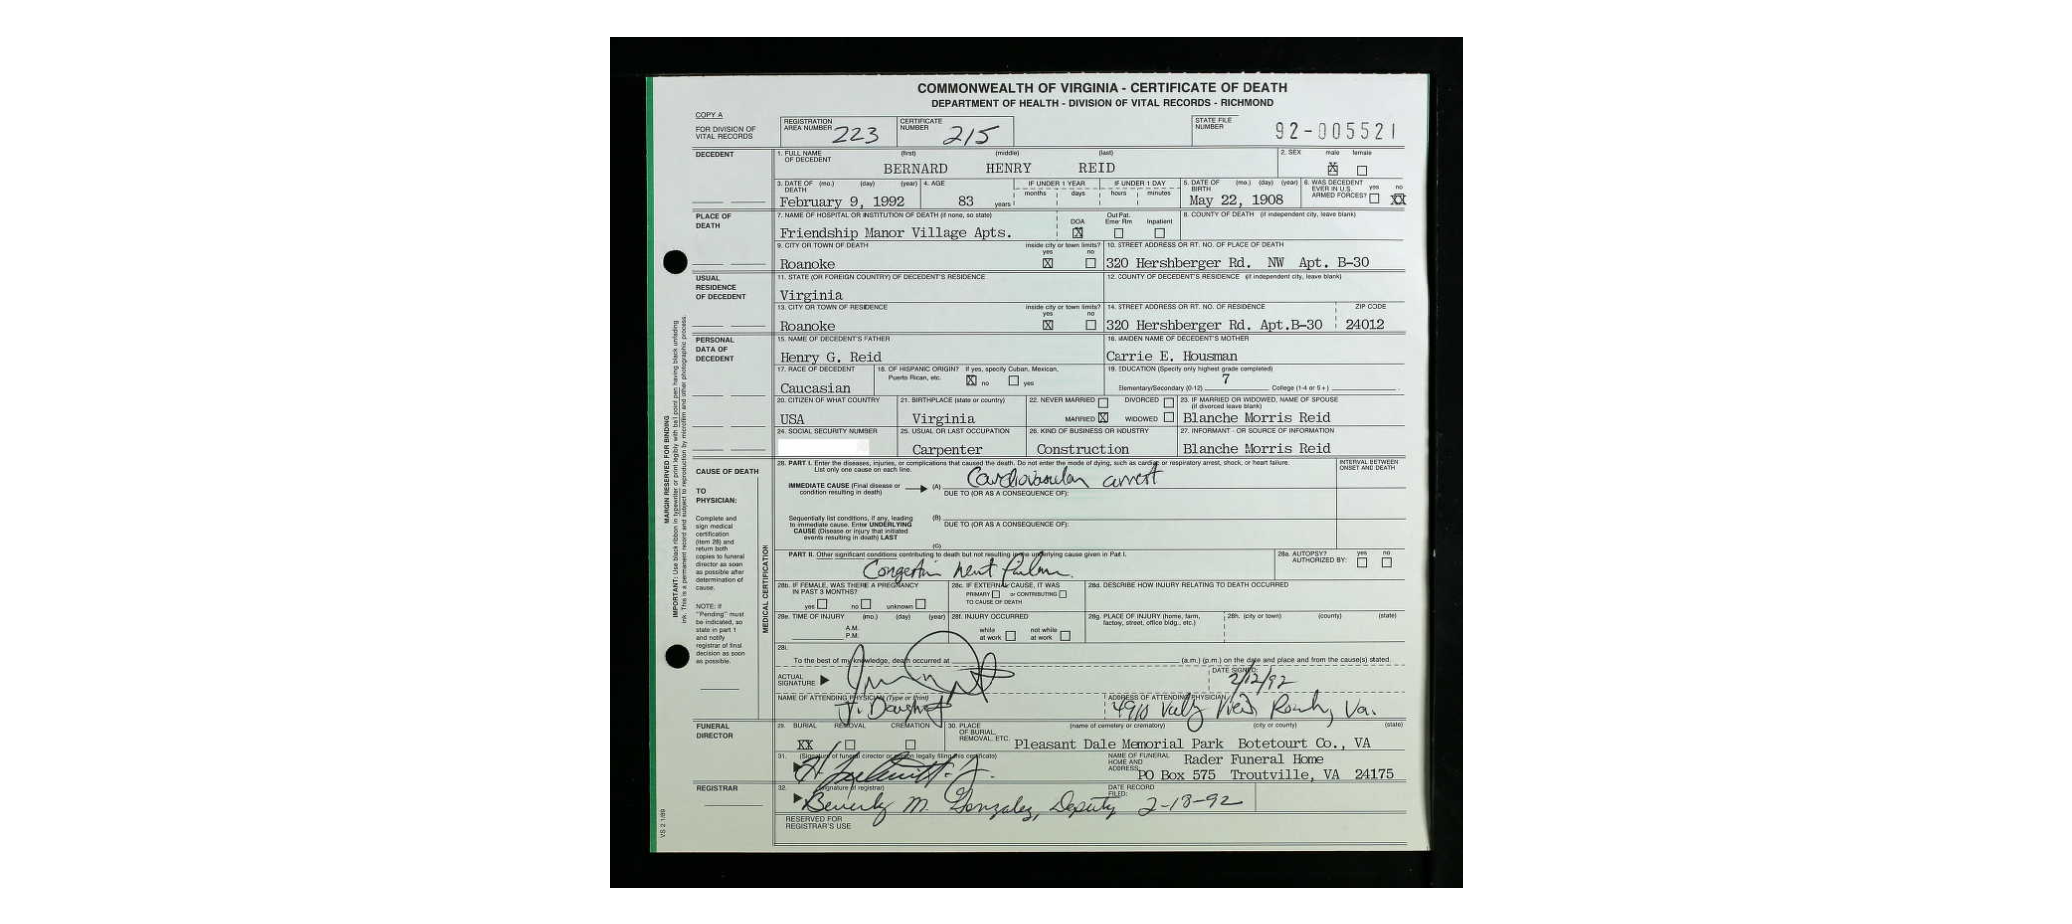 COMMONWEALTH OF VIRGINIA - CERTIFICATE OF DEATH
DEPARTMENT OF HEALTH - DIVISION OF VITAL RECORDS - RICHMOND
COPY A
FOR DIVISION OF VITAL RECORDS
REGISTRATION AREA NUMBER 223
CERTIFICATE NUMBER 215
STATE FILE NUMBER 92-005521
DECEDENT
1. FULL NAME OF DECEDENT (first) (middle) (last)
BERNARD HENRY REID
2. SEX male female
X
3. DATE OF DEATH (mo.) (day) (year)
February 9, 1992
4. AGE
83 years
IF UNDER 1 YEAR months days
IF UNDER 1 DAY hours minutes
5. DATE OF BIRTH (mo.) (day) (year)
May 22, 1908
6. WAS DECEDENT EVER IN U.S. ARMED FORCES? yes no
XX
PLACE OF DEATH
7. NAME OF HOSPITAL OR INSTITUTION OF DEATH (if none, so state)
Friendship Manor Village Apts.
DOA X Out Pat. Emer Rm Inpatient
8. COUNTY OF DEATH (if independent city, leave blank)
9. CITY OR TOWN OF DEATH
Roanoke
inside city or town limits? yes X no
10. STREET ADDRESS OR RT. NO. OF PLACE OF DEATH
320 Hershberger Rd. NW Apt. B-30
USUAL RESIDENCE OF DECEDENT
11. STATE (OR FOREIGN COUNTRY) OF DECEDENT'S RESIDENCE
Virginia
12. COUNTY OF DECEDENT'S RESIDENCE (if independent city, leave blank)
13. CITY OR TOWN OF RESIDENCE
Roanoke
inside city or town limits? yes X no
14. STREET ADDRESS OR RT. NO. OF RESIDENCE
320 Hershberger Rd. Apt.B-30
ZIP CODE
24012
PERSONAL DATA OF DECEDENT
15. NAME OF DECEDENT'S FATHER
Henry G. Reid
16. MAIDEN NAME OF DECEDENT'S MOTHER
Carrie E. Housman
17. RACE OF DECEDENT
Caucasian
18. OF HISPANIC ORIGIN? If yes, specify Cuban, Mexican, Puerto Rican, etc. X no yes
19. EDUCATION (Specify only highest grade completed)
Elementary/Secondary (0-12) 7 College (1-4 or 5+)
20. CITIZEN OF WHAT COUNTRY
USA
21. BIRTHPLACE (state or country)
Virginia
22. NEVER MARRIED DIVORCED
MARRIED X WIDOWED
23. IF MARRIED OR WIDOWED, NAME OF SPOUSE (if divorced leave blank)
Blanche Morris Reid
24. SOCIAL SECURITY NUMBER
25. USUAL OR LAST OCCUPATION
Carpenter
26. KIND OF BUSINESS OR INDUSTRY
Construction
27. INFORMANT - OR SOURCE OF INFORMATION
Blanche Morris Reid
CAUSE OF DEATH
TO PHYSICIAN:
Complete and sign medical certification (item 28) and return both copies to funeral director as soon as possible after determination of cause.
NOTE: If "Pending" must be indicated, so state in part 1 and notify registrar of final decision as soon as possible.
MEDICAL CERTIFICATION
28. PART I. Enter the diseases, injuries, or complications that caused the death. Do not enter the mode of dying, such as cardiac or respiratory arrest, shock, or heart failure. List only one cause on each line.
INTERVAL BETWEEN ONSET AND DEATH
IMMEDIATE CAUSE (Final disease or condition resulting in death)
(A) Cardiovascular arrest
DUE TO (OR AS A CONSEQUENCE OF):
Sequentially list conditions, if any, leading to immediate cause. Enter UNDERLYING CAUSE (Disease or injury that initiated events resulting in death) LAST
(B)
DUE TO (OR AS A CONSEQUENCE OF):
(C)
PART II. Other significant conditions contributing to death but not resulting in the underlying cause given in Part I.
Congestive heart failure
28a. AUTOPSY? AUTHORIZED BY: yes no
28b. IF FEMALE, WAS THERE A PREGNANCY IN PAST 3 MONTHS? yes no unknown
28c. IF EXTERNAL CAUSE, IT WAS PRIMARY or CONTRIBUTING TO CAUSE OF DEATH
28d. DESCRIBE HOW INJURY RELATING TO DEATH OCCURRED
28e. TIME OF INJURY (mo.) (day) (year)
A.M.
P.M.
28f. INJURY OCCURRED while at work not while at work
28g. PLACE OF INJURY (home, farm, factory, street, office bldg., etc.)
28h. (city or town) (county) (state)
28i.
To the best of my knowledge, death occurred at (a.m.) (p.m.) on the date and place and from the cause(s) stated
ACTUAL SIGNATURE
DATE SIGNED:
2/12/92
NAME OF ATTENDING PHYSICIAN (Type or Print)
J.
ADDRESS OF ATTENDING PHYSICIAN
4910 Va.
FUNERAL DIRECTOR
29. BURIAL REMOVAL CREMATION
XX
30. PLACE OF BURIAL, REMOVAL, ETC. (name of cemetery or crematory) (city or county) (state)
Pleasant Dale Memorial Park Botetourt Co., VA
31. (Signature of funeral director or person legally filing this certificate)
NAME OF FUNERAL HOME AND ADDRESS
Rader Funeral Home
PO Box 575 Troutville, VA 24175
REGISTRAR
32. (signature of registrar)
Beverly M. Gonzalez, Deputy
DATE RECORD FILED:
2-18-92
RESERVED FOR REGISTRAR'S USE
MARGIN RESERVED FOR BINDING
VS 2 1/89